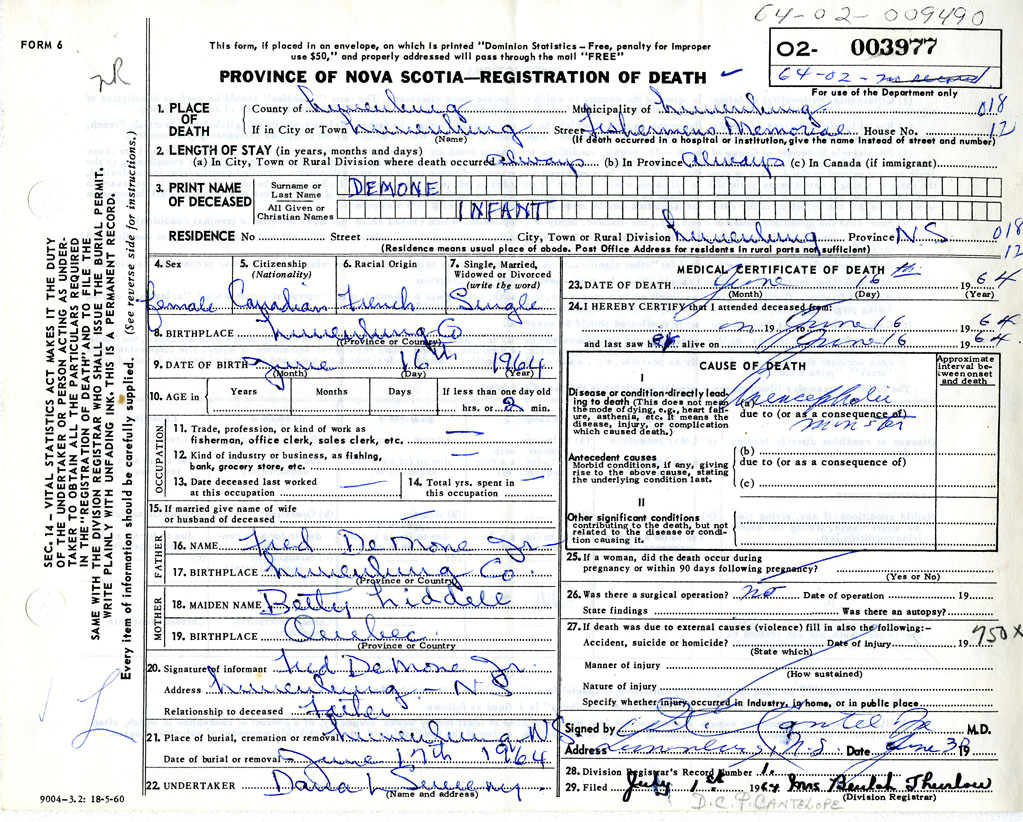 64-02-009490
FORM 6
NR
This form, if placed in an envelope, on which is printed "Dominion Statistics—Free, penalty for improper
use $50," and properly addressed will pass through the mail "FREE"
02- 003977
64-02-no record
For use of the Department only
PROVINCE OF NOVA SCOTIA—REGISTRATION OF DEATH
1. PLACE OF DEATH
County of Lunenburg Municipality of Lunenburg 018
If in City or Town Lunenburg Street Fishermens Memorial House No. 12
(Name) (If death occurred in a hospital or institution, give the name instead of street and number)
2. LENGTH OF STAY (in years, months and days)
(a) In City, Town or Rural Division where death occurred always (b) In Province Always (c) In Canada (if immigrant)
3. PRINT NAME OF DECEASED
Surname or Last Name DEMONE
All Given or Christian Names INFANT
RESIDENCE No Street City, Town or Rural Division Lunenburg Province NS 018
(Residence means usual place of abode. Post Office Address for residents in rural parts not sufficient) 12
4. Sex female
5. Citizenship (Nationality) Canadian
6. Racial Origin French
7. Single, Married, Widowed or Divorced (write the word) Single
8. BIRTHPLACE Lunenburg Co
(Province or Country)
9. DATE OF BIRTH June 16th 1964
(Month) (Day) (Year)
10. AGE in Years Months Days If less than one day old
hrs. or 2 min.
OCCUPATION
11. Trade, profession, or kind of work as
fisherman, office clerk, sales clerk, etc. —
12. Kind of industry or business, as fishing,
bank, grocery store, etc. —
13. Date deceased last worked
at this occupation —
14. Total yrs. spent in
this occupation —
15. If married give name of wife
or husband of deceased —
FATHER
16. NAME Fred DeMone Jr
17. BIRTHPLACE Lunenburg Co
(Province or Country)
MOTHER
18. MAIDEN NAME Betty Liddell
19. BIRTHPLACE Quebec
(Province or Country
20. Signature of informant Fred DeMone Jr.
Address Lunenburg - NS
Relationship to deceased father
21. Place of burial, cremation or removal Lunenburg NS
Date of burial or removal June 17th 1964
22. UNDERTAKER
(Name and address)
9004-3.2: 18-5-60
MEDICAL CERTIFICATE OF DEATH
23. DATE OF DEATH June 16 1964
(Month) (Day) (Year)
24. I HEREBY CERTIFY that I attended deceased from:
on 19 to June 16 1964
and last saw her alive on June 16 1964
CAUSE OF DEATH
Approximate interval between onset and death
I
Disease or condition directly leading to death (This does not mean the mode of dying, e.g., heart failure, asthenia, etc. It means the disease, injury, or complication which caused death.)
(a) Anencephalic
due to (or as a consequence of)
monster
Antecedent causes
Morbid conditions, if any, giving rise to the above cause, stating the underlying condition last.
(b)
due to (or as a consequence of)
(c)
II
Other significant conditions
contributing to the death, but not related to the disease or condition causing it.
25. If a woman, did the death occur during
pregnancy or within 90 days following pregnancy?
(Yes or No)
26. Was there a surgical operation? No Date of operation 19
State findings Was there an autopsy?
27. If death was due to external causes (violence) fill in also the following:— 750X
Accident, suicide or homicide? Date of injury 19
(State which)
Manner of injury
(How sustained)
Nature of injury
Specify whether injury occurred in industry, in home, or in public place
Signed by M.D.
Address Lunenburg, N.S. Date June 30 19
28. Division Registrar's Record Number 1.
29. Filed July 1st 1964 Mrs Beulah Thurlow
(Division Registrar)
D. C. P. CANTELOPE
SEC. 14 – VITAL STATISTICS ACT MAKES IT THE DUTY
OF THE UNDERTAKER OR PERSON ACTING AS UNDER-
TAKER TO OBTAIN ALL THE PARTICULARS REQUIRED
IN THE "REGISTRATION OF DEATH" AND FILE THE
SAME WITH THE DIVISION REGISTRAR WHO SHALL ISSUE THE BURIAL PERMIT.
WRITE PLAINLY WITH UNFADING INK. THIS IS A PERMANENT RECORD.
Every item of information should be carefully supplied. (See reverse side for instructions.)